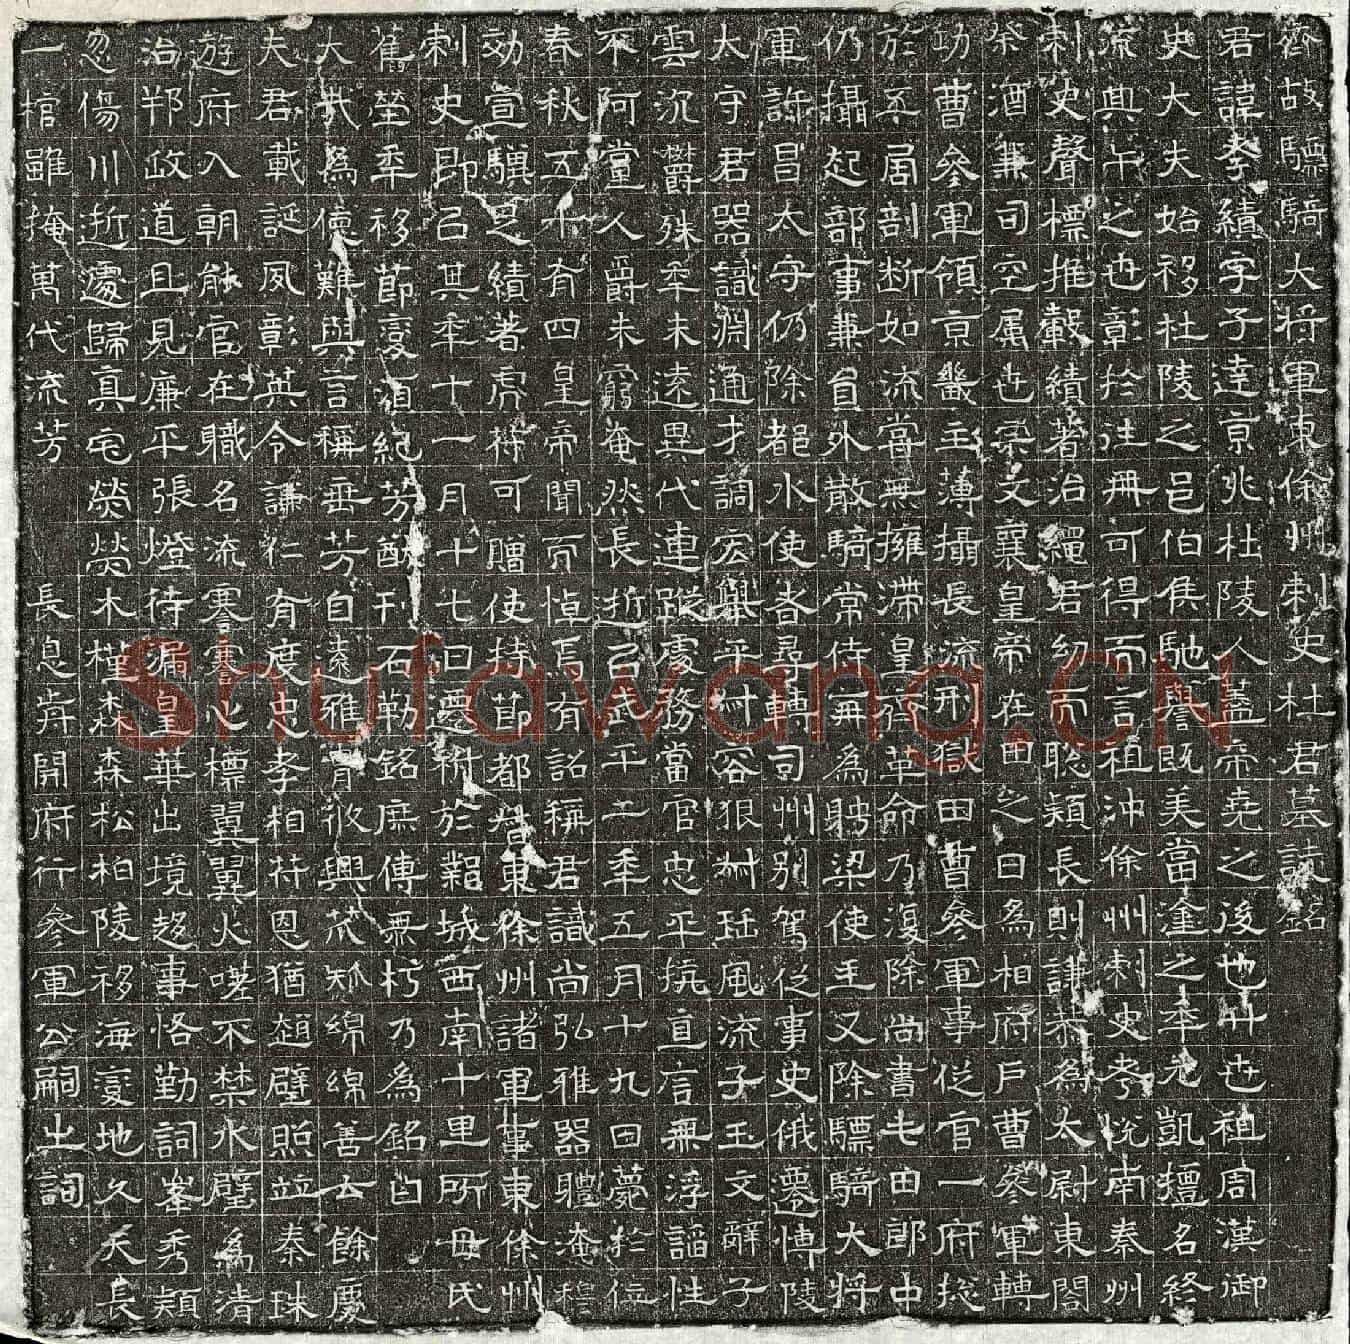 齊故驃騎大將軍東徐州刺史杜君墓誌銘
君諱孝績字子達京兆杜陵人蓋帝堯之後也廿世祖周漢御
史大夫始移杜陵之邑伯侯馳譽既美當塗之年元凱擅名終
流典午之世彰於註冊可得而言祖沖徐州刺史考悅南秦州
刺史聲標推轂績著治繩君幼而聰穎長則謙恭為太尉東閤
祭酒兼司空属世宗文襄皇帝在田之日為相府戶曹參軍轉
功曹參軍領京畿主薄攝長流刑獄田曹參軍事從官一府捴
於五局剖断如流嘗無擁滯皇祚革命乃復除尚書屯田郎中
仍攝起部事兼員外散騎常侍再為聘梁使主又除驃騎大將
軍許昌太守仍除都水使者尋轉司州別駕從事史俄遷博陵
太守君器識淵通才調宏舉平叔容狠叔珏風流子玉文辭子
雲沉欝殊年未遠異代連蹤處務當官忠平抗直言無浮諂性
不阿黨人爵未窮奄然長逝以武平二年五月十九日薨於位
春秋五十有四皇帝聞而悼焉有詔稱君識尚弘雅器體淹穆
効宣驥足績著虎符可贈使持節都督東徐州諸軍事東徐州
刺史即以其年十一月十七日遷祔於鄴城西南十里所毋氏
舊塋年移節變須紀芳猷刊石勒銘庶傳無朽乃為銘曰
大哉為德難與言稱垂芳自遠雅胄攸興茂矣綿綿善人餘慶
夫君載誕夙彰英令謙仁有度忠孝相持恩猶趙璧照並秦珠
遊府入朝能官在職名流謇謇心標翼翼火嗟不禁水璧為清
治邦政道且見廉平張燈待漏皇華出境趍事恪勤詞峯秀穎
忽傷川逝遽歸真宅熒熒木槿森森松柏陵移海變地久天長
一棺雖掩萬代流芳 長息開府行參軍公嗣之詞
Shufawang.CN